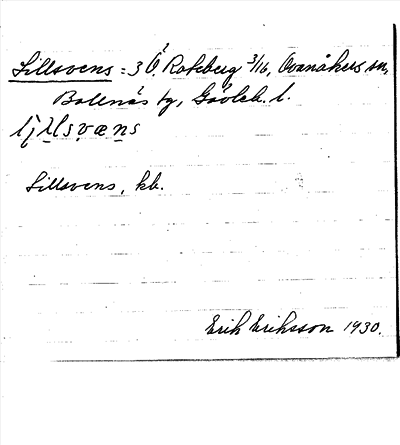 Lillsvens = 3 Ö. Roteberg 3/16, Ovanåkers sn,
Bollnäs tg, Gävleb. l.
Lillsvens, kb.
Erik Eriksson 1930.